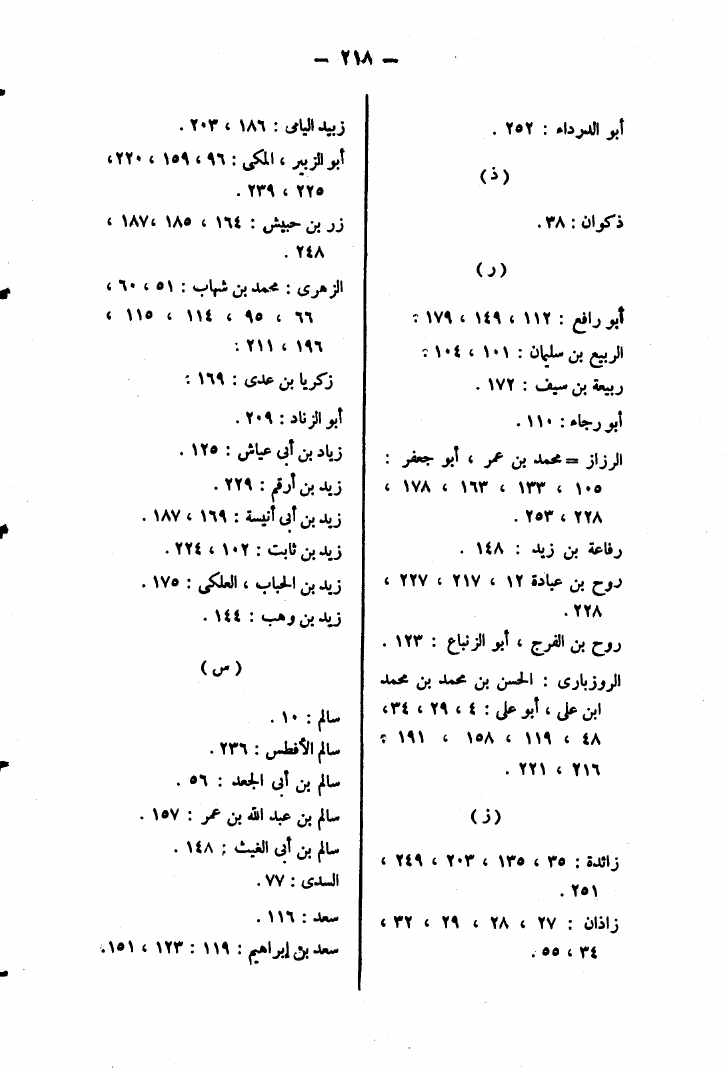 — ٢١٨ —
أبو الدرداء : ٢٥٢ .
( ذ )
ذكوان : ٣٨ .
( ر )
أبو رافع : ١١٢ ، ١٤٩ ، ١٧٩ :
الربيع بن سليمان : ١٠١ ، ١٠٤ :
ربيعة بن سيف : ١٧٢ .
أبو رجاء : ١١٠ .
الرزاز = محمد بن عمر ، أبو جعفر :
١٠٥ ، ١٣٣ ، ١٦٣ ، ١٧٨ ،
٢٢٨ ، ٢٥٣ .
رفاعة بن زيد : ١٤٨ .
روح بن عبادة ١٢ ، ٢١٧ ، ٢٢٧ ،
٢٢٨ .
روح بن الفرج ، أبو الزنباع : ١٢٣ .
الروزبارى : الحسن بن محمد بن محمد
ابن على ، أبو على : ٤ ، ٢٩ ، ٣٤ ،
٤٨ ، ١١٩ ، ١٥٨ ، ١٩١ :
٢١٦ ، ٢٢١ .
( ز )
زائدة : ٣٥ ، ١٣٥ ، ٢٠٣ ، ٢٤٩ ،
٢٥١ .
زاذان : ٢٧ ، ٢٨ ، ٢٩ ، ٣٢ ،
٣٤ ، ٥٥ .
زبيد اليامى : ١٨٦ ، ٢٠٣ .
أبو الزبير ، المكى : ٩٦ ، ١٥٩ ، ٢٢٠ ،
٢٢٥ ، ٢٣٩ .
زر بن حبيش : ١٦٤ ، ١٨٥ ، ١٨٧ ،
٢٤٨ .
الزهرى : محمد بن شهاب : ٥١ ، ٦٠ ،
٦٦ ، ٩٥ ، ١١٤ ، ١١٥ ،
١٩٦ ، ٢١١ :
زكريا بن عدى : ١٦٩ :
أبو الزناد : ٢٠٩ .
زياد بن أبى عياش : ١٢٥ .
زيد بن أرقم : ٢٢٩ .
زيد بن أبى أنيسة : ١٦٩ ، ١٨٧ .
زيد بن ثابت : ١٠٢ ، ٢٢٤ .
زيد بن الحباب ، العلكى : ١٧٥ .
زيد بن وهب : ١٤٤ .
( س )
سالم : ١٠ .
سالم الأفطس : ٢٣٦ .
سالم بن أبى الجعد : ٥٦ .
سالم بن عبد الله بن عمر : ١٥٧ .
سالم بن أبى الغيث ; ١٤٨ .
السدى : ٧٧ .
سعد : ١١٦ .
سعد بن إبراهيم : ١١٩ : ١٢٣ ، ١٥١ .